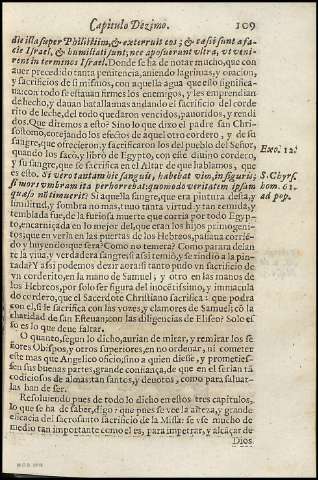 Capitulo Dezimo. 109
die illa super Philistiim, & exterruit eos; & cæsi sunt a fa-
cie Israel, & humiliati sunt; nec aposuerunt vltra, vt veni-
rent in terminos Israel. Donde se ha de notar mucho, que con
auer precedido tanta penitencia, aniendo lagrimas, y oracion,
y sacrificios de si mismos, con aquella agua que esto significa-
ua: con todo se estauan firmes los enemigos, y les emprendian
de hecho, y dauan batalla: mas andando el sacrificio del corde
rito de leche, del todo quedaron vencidos, pauoridos, y rendi-
dos. Que diremos a esto? Sino lo que dixo el padre san Chri-
sostomo, cotejando los efectos de aquel otro cordero, y de su
sangre, que ofrecieron, y sacrificaron los del pueblo del Señor,
quando los saco, y libro de Egypto, con este diuino cordero,
y su sangre, que se sacrifica en el Altar de que hablamos, que
es esto. Si vero tantam hic sanguis, habebat vim, in figuris;
si mors vmbram ita perhorrebat: quomodo veritatem ipsam
quæso nõ timuerit? Si aquella sangre, que era pintura desta,
similitud, y sombra no mas, tuuo tanta virtud, y tan temida, y
temblada fue, de la furiosa muerte que corria por todo Egyp-
to, encarniçada en lo mejor del, que eran los hijos primoge-
nitos; que en verla en las puertas de los Hebreos, passaua corrie-
do, y huyendo que sera? Como no temera? Como parara delan
te la viua, y verdadera sangre, si assi temio, y se rindio a la pin-
tada? Y assi podemos dezir aora: si tanto pudo vn sacrificio de
vn corderito, en la mano de Samuel; y otro en las manos de
los Hebreos, por solo ser figura del inocẽtissimo, y immacula
do cordero, que el Sacerdote Christiano sacrifica: que podra
con el, si le sacrifica con las vozes, y clamores de Samuel: cõ la
charidad de san Esteuan; con las diligencias de Eliseo? Solo es
so es lo que deue faltar.
O quanto, segun lo dicho, aurian de mirar, y remirar los se
ñores Obispos, y otros superiores, en no ordenar, ni cometer
este mas que Angelico oficio, sino a quien diesse, y prometies-
sen sus buenas partes, grande confiança, de que en el serian tã
codiciosos de almas: tan santos, y deuotos, como para saluar-
las han de ser.
Resoluiendo pues de todo lo dicho en estos tres capitulos,
lo que se ha de saber, digo: que pues se vee la alteza, y grande
eficacia del sacrosanto sacrificio de la Missa: se vee de
medio tan importante como el es, para impetrar, y alcãçar de
Dios
Exo. 12.
S. Chrys.
hom. 61.
ad pop.